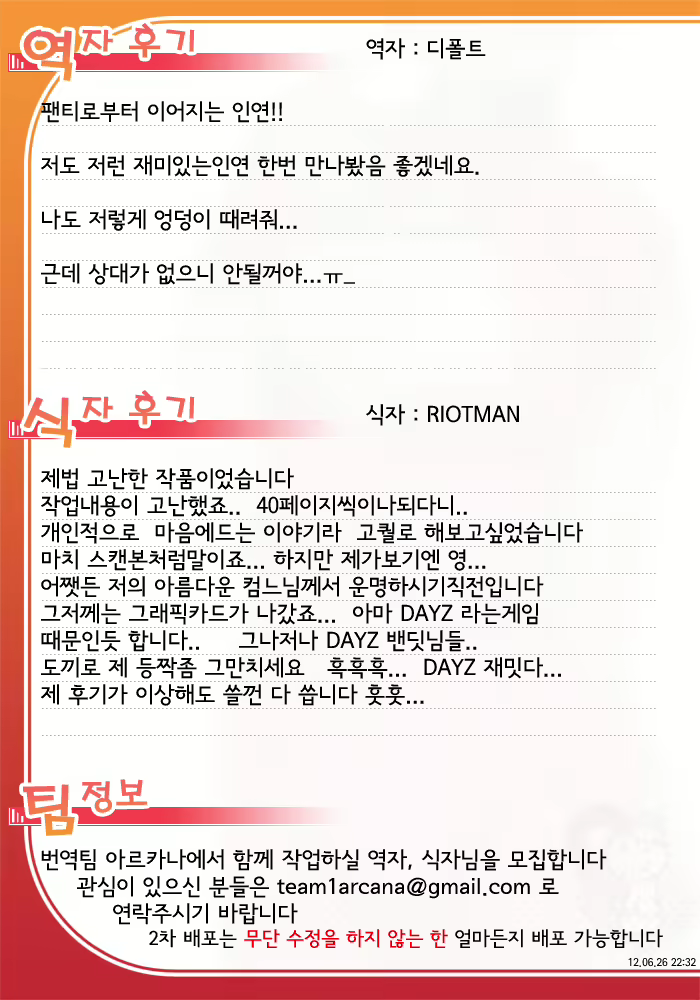 역자 후기
역자 : 디폴트
팬티로부터 이어지는 인연!!
저도 저런 재미있는인연 한번 만나봤음 좋겠네요.
나도 저렇게 엉덩이 때려줘...
근데 상대가 없으니 안될꺼야...ㅠ_
식자 후기
식자 : RIOTMAN
제법 고난한 작품이었습니다
작업내용이 고난했죠.. 40페이지씩이나되다니..
개인적으로 마음에드는 이야기라 고퀄로 해보고싶었습니다
마치 스캔본처럼말이죠... 하지만 제가보기엔 영...
어쨋든 저의 아름다운 컴느님께서 운명하시기직전입니다
그저께는 그래픽카드가 나갔죠... 아마 DAYZ 라는게임
때문인듯 합니다.. 그나저나 DAYZ 밴딧님들..
도끼로 제 등짝좀 그만치세요 흑흑흑... DAYZ 재밋다...
제 후기가 이상해도 쓸껀 다 씁니다 훗훗...
팀정보
번역팀 아르카나에서 함께 작업하실 역자, 식자님을 모집합니다
관심이 있으신 분들은 team1arcana@gmail.com 로
연락주시기 바랍니다
2차 배포는 무단 수정을 하지 않는 한 얼마든지 배포 가능합니다
12.06.26 22:32